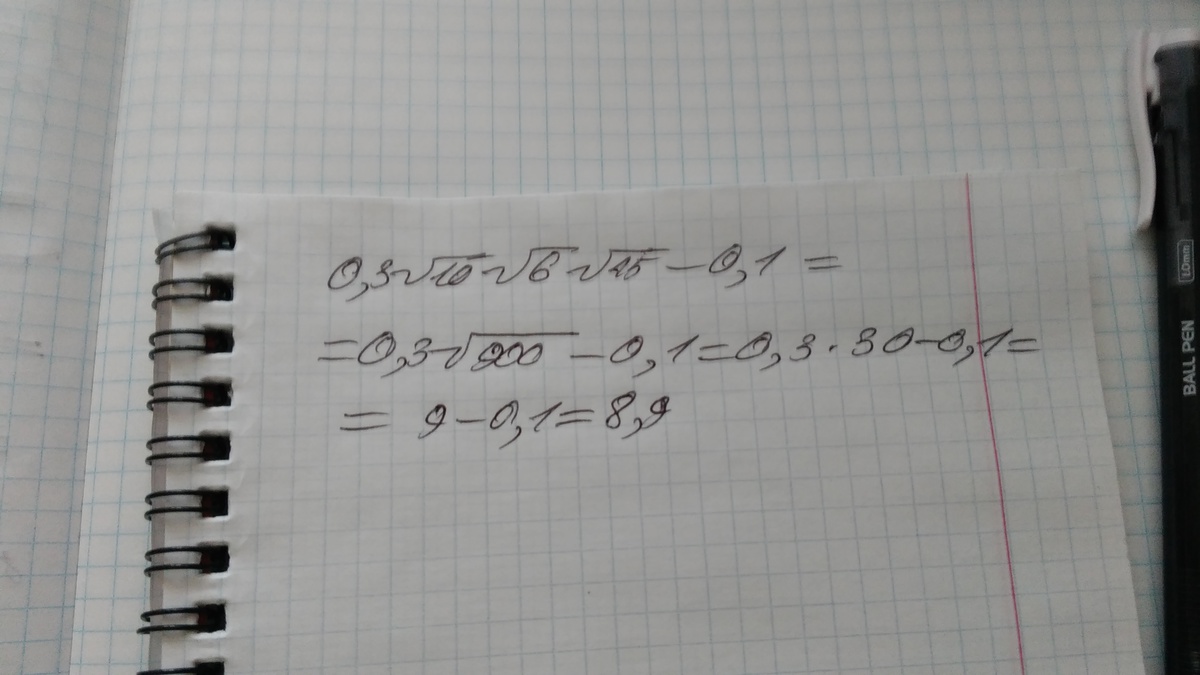 0,3√10 √6 √25 − 0,1 =
= 0,3√900 − 0,1 = 0,3 · 30 − 0,1 =
= 9 − 0,1 = 8,9
BALL PEN 1.0mm